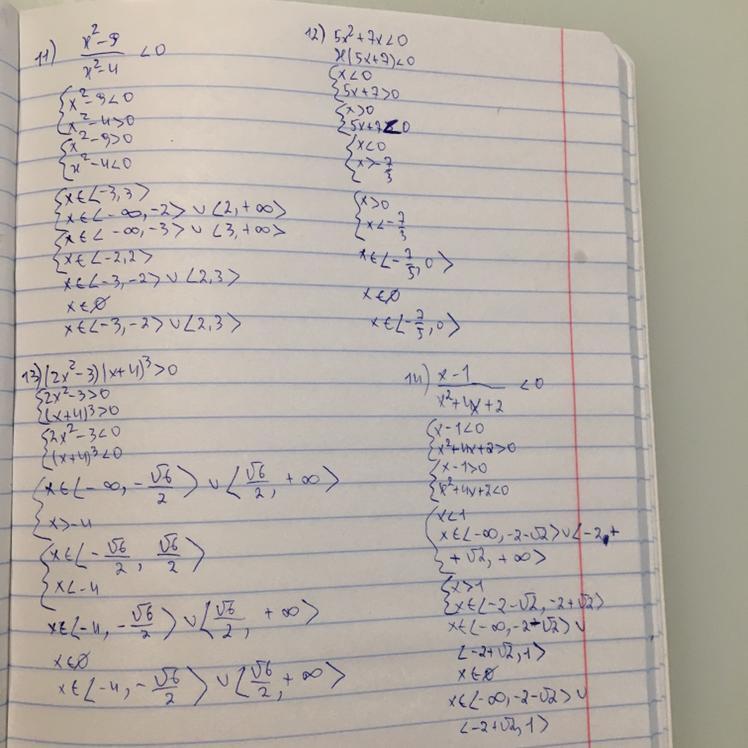 11) x²-9 / x²-4 <0
{x²-9<0
x²-4>0
{x²-9>0
x²-4<0
{x∈<-3,3>
x∈<-∞,-2>∪<2,+∞>
{x∈<-∞,-3>∪<3,+∞>
x∈<-2,2>
x∈<-3,-2>∪<2,3>
x∈∅
x∈<-3,-2>∪<2,3>
12) 5x²+7x<0
x(5x+7)<0
{x<0
5x+7>0
{x>0
5x+7<0
{x<0
x>-7/5
{x>0
x<-7/5
x∈<-7/5,0>
x∈∅
x∈<-7/5,0>
13) (2x²-3)(x+4)³>0
{2x²-3>0
(x+4)³>0
{2x²-3<0
(x+4)³<0
{x∈<-∞,-√6/2>∪<√6/2,+∞>
x>-4
{x∈<-√6/2, √6/2>
x<-4
x∈<-4,-√6/2>∪<√6/2,+∞>
x∈∅
x∈<-4,-√6/2>∪<√6/2,+∞>
14) x-1 / x²+4x+2 <0
{x-1<0
x²+4x+2>0
{x-1>0
x²+4x+2<0
{x<1
x∈<-∞,-2-√2>∪<-2+
+√2,+∞>
{x>1
x∈<-2-√2,-2+√2>
x∈<-∞,-2-√2>∪
<-2+√2,1>
x∈∅
x∈<-∞,-2-√2>∪
<-2+√2,1>